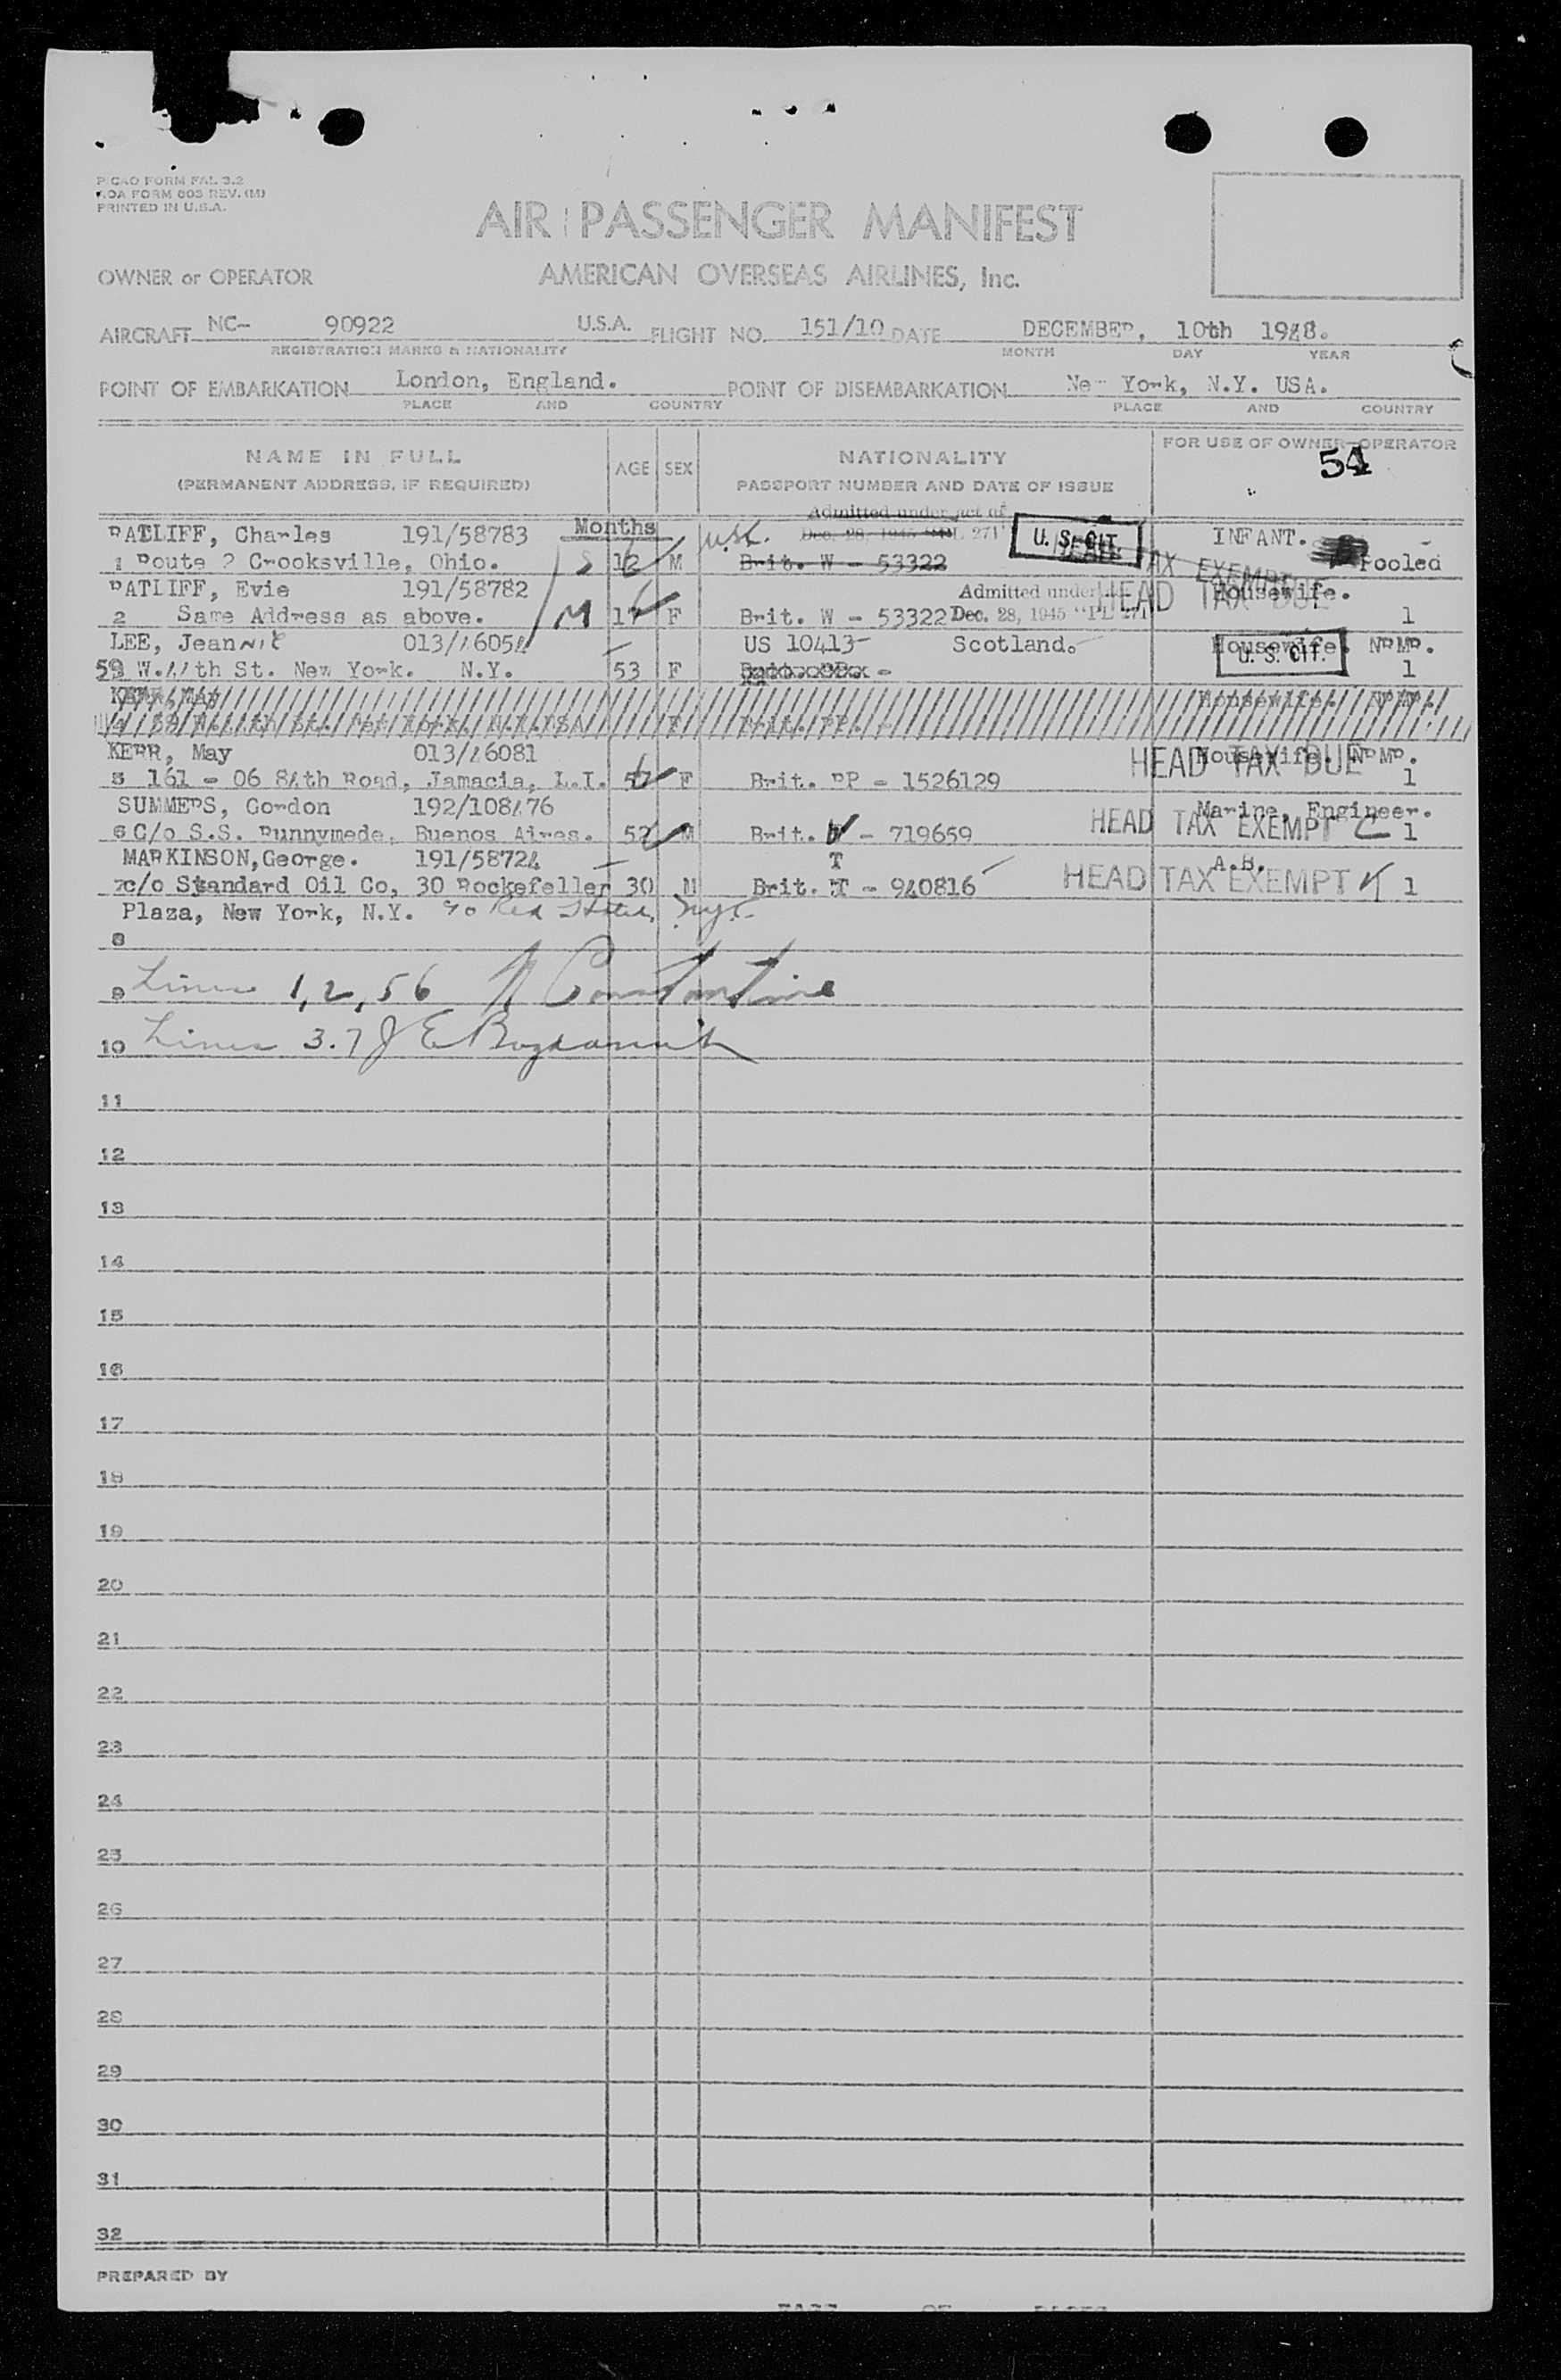 PICAO FORM FAL 3.2
AOA FORM 603 REV. (M)
PRINTED IN U.S.A.
AIR PASSENGER MANIFEST
OWNER or OPERATOR AMERICAN OVERSEAS AIRLINES, Inc.
AIRCRAFT NC- 90922 U.S.A. FLIGHT NO. 151/10 DATE DECEMBER, 10th 1948.
REGISTRATION MARKS & NATIONALITY MONTH DAY YEAR
POINT OF EMBARKATION London, England. POINT OF DISEMBARKATION New York, N.Y. USA.
PLACE AND COUNTRY PLACE AND COUNTRY
NAME IN FULL AGE SEX NATIONALITY FOR USE OF OWNER-OPERATOR
(PERMANENT ADDRESS, IF REQUIRED) PASSPORT NUMBER AND DATE OF ISSUE 54
Admitted under act of
RATLIFF, Charles 191/58783 Months Dec. 28, 1945 "PL 271" U. S. CIT. INFANT.
1 Route 2 Crooksville, Ohio. S 12 M Brit. W - 53322 TAX EXEMPT Pooled
RATLIFF, Evie 191/58782 Admitted under HEAD TAX DUE Housewife.
2 Same Address as above. M 17 F Brit. W - 53322 Dec. 28, 1945 "PL 271" 1
LEE, Jeannie 013/46054 US 10413 Scotland. Housewife. U. S. CIT.
59 W.44th St. New York. N.Y. 53 F 1
KERR, May Housewife.
KERR, May 013/46081 HEAD TAX DUE Housewife.
5 161 - 06 84th Road, Jamacia, L.I. 57 F Brit. PP - 1526129 1
SUMMERS, Gordon 192/108476 Marine, Engineer.
6 C/o S.S. Runnymede, Buenos Aires. 52 M Brit. - 719659 HEAD TAX EXEMPT C 1
MARKINSON, George. 191/58724 T A.B.
7 c/o Standard Oil Co, 30 Rockefeller 30 M Brit. T - 940816 HEAD TAX EXEMPT 1
Plaza, New York, N.Y. c/o Red
8
9 Lines 1,2,56 N Constantine
10 Lines 3.7 J E
11
12
13
14
15
16
17
18
19
20
21
22
23
24
25
26
27
28
29
30
31
32
PREPARED BY